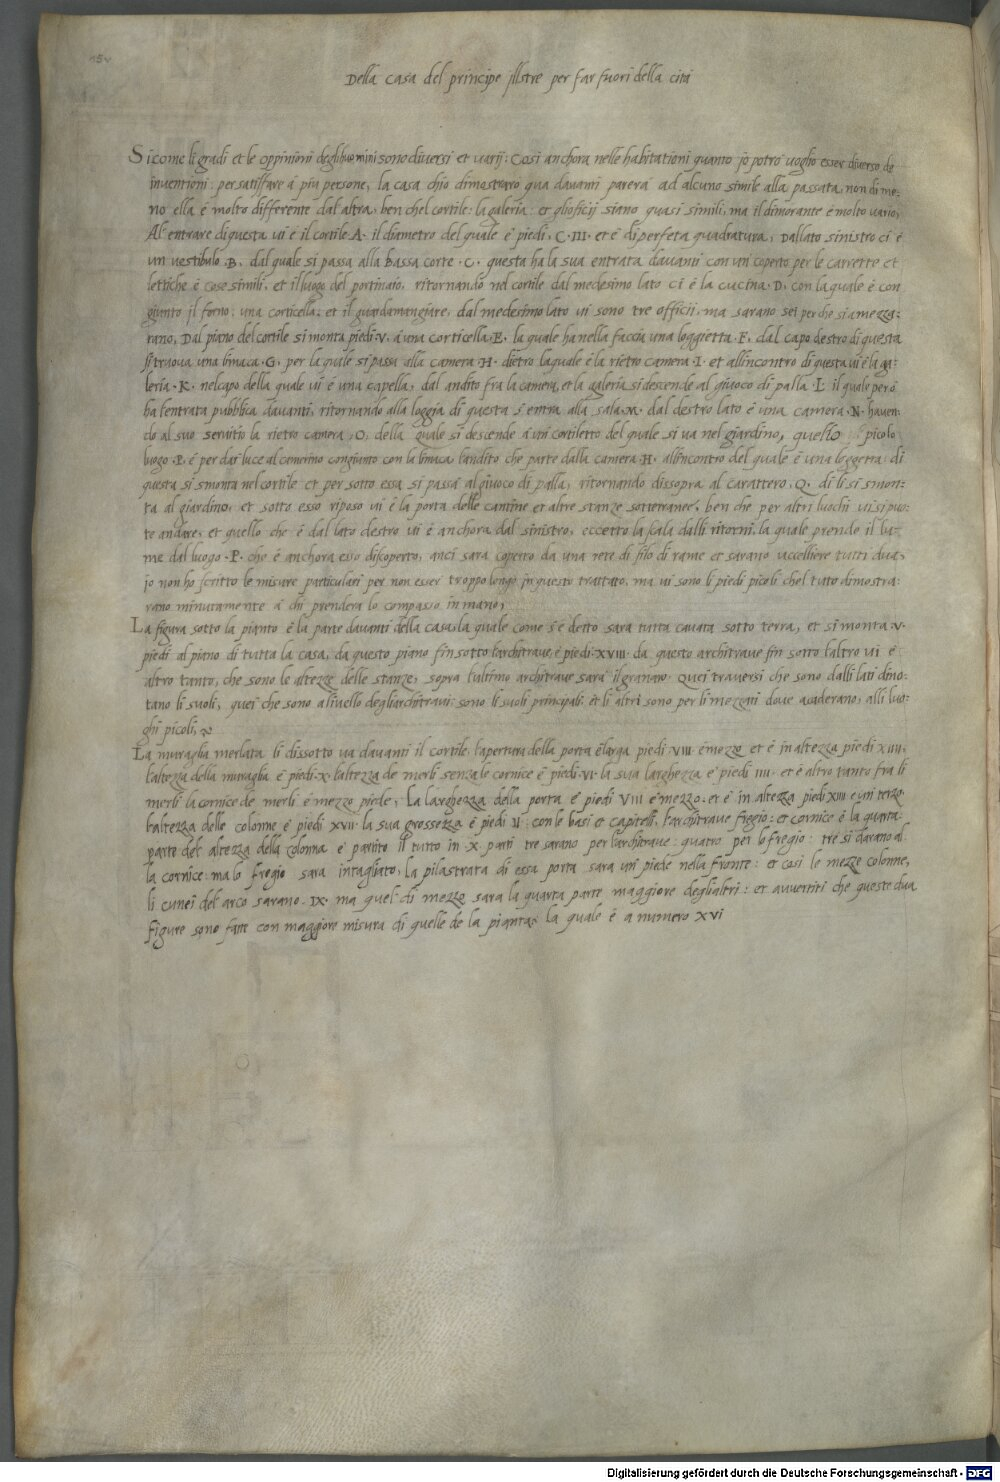 15v
Della casa del principe jllstre per far fuori della cità
Sicome li gradi et le oppinioni deglihuomini sono diversi et varij: cosi anchora nelle habitationi quanto jo potrò voglio esser diverso de
inventioni: per satisfare à più persone, la casa ch'io dimostrarò qua davanti parerà ad alcuno simile alla passata, non di me-
no ella è molto differente dal'altra, ben chel cortile: la galeria: et gliofficij siano quasi simili, ma il dimorante è molto vario,
Al'entrare di questa vi è il cortile .A. il diametro del quale è piedi .C.III. et è di perfeta quadratura, Dallato sinistro ci è
un vestibulo .B. dal quale si passa alla bassa corte .C. questa ha la sua entrata davanti con un coperto per le carrette et
lettiche è cose simili, et il luogo del portinaio, ritornando nel cortile dal medesimo lato ci è la cucina .D. con la quale è con
giunto il forno: una corticella: et il guardamangiare, dal medesimo lato vi sono tre officij, ma sarano sei perche si amezza-
rano, Dal piano del cortile si monta piedi .V. à una corticella .E. la quale ha nella faccia una loggietta .F. dal capo destro di questa
si truova una limaca .G. per la quale si passa alla camera .H. dietro la quale è la rietro camera .I. et all'incontro di questa vi è la ga-
leria .K. nel capo della quale vi è una capella, dal andito fra la camera, et la galeria si descende al giuoco di palla .L. il quale però
ha l'entrata pubblica davanti, ritornando alla loggia di questa s'entra alla sala .M. dal destro lato è una camera .N. haven-
do al suo servitio la rietro camera .O. della quale si descende à un cortiletto del quale si va nel giardino, quello picolo
luogo .P. è per dar luce al camerino congiunto con la limaca l'andito che parte dalla camera .H. all'incontro del quale è una loggetta: di
questa si smonta nel cortile et per sotto essa si passa al giuoco di palla, ritornando dissopra al carattero .Q. di li si smon-
ta al giardino, et sotto esso riposo vi è la porta delle cantine et altre stanze sotterranee, ben che per altri luochi vi si puo-
te andare, et quello che è dal lato destro vi è anchora dal sinistro, eccetto la scala dalli ritorni, la quale prende il lu-
me dal luogo .P. che è anchora esso discoperto, anci sarà coperto da una rete di filo di rame et sarano uccelliere tutti dua,
jo non ho scritto le misure particulari per non esser troppo longo in questo trattato, ma vi sono li piedi picoli che'l tuto dimostra-
rano minutamente à chi prenderà lo compasso in mano,
La figura sotto la pianta è la parte davanti della casa, la quale come s'è detto sarà tutta cavata sotto terra, et si monta .V.
piedi al piano di tutta la casa, da questo piano fin sotto l'architrave è piedi .XVIII. da questo architrave fin sotto l'altro vi è
altro tanto, che sono le altezze delle stanze, sopra l'ultimo architrave sarà il granaro. Quei traversi che sono dalli lati dino-
tano li suoli, quei che sono a livello degliarchitravi: sono li suoli principali et li altri sono per li mezzani dove acaderano, alli luo-
ghi picoli,
La muraglia merlata li dissotto va davanti il cortile, l'apertura della porta è larga piedi .VIII. è mezzo et è in altezza piedi XIIII.
l'altezza della muraglia è piedi .X. l'altezza de merli senza le cornice è piedi .VI. la sua larghezza è piedi IIII. et è altro tanto fra li
merli la cornice de merli è mezzo piede, La larghezza della porta è piedi VIII è mezzo. et è in altezza piedi XIIII è un terzo.
l'altezza delle colonne è piedi XVII. la sua grossezza è piedi II. con le basi et capitelli, l'architrave freggio: et cornice è la quarta
parte del' altezza della colonna è partito il tutto in .X. parti tre sarano per l'architrave: quatro per lo fregio: tre si darano al-
la cornice: ma lo fregio sarà intagliato, La pilastrata di essa porta sarà un' piede nella fronte: et cosi le mezze colonne,
li cunei del' arco sarano .IX. ma quel' di mezzo sarà la quarta parte maggiore deglialtri: et avvertiti che queste dua
figure sono fatte con maggiore misura di quelle de la pianta. la quale è a numero XVI
Digitalisierung gefördert durch die Deutsche Forschungsgemeinschaft - DFG